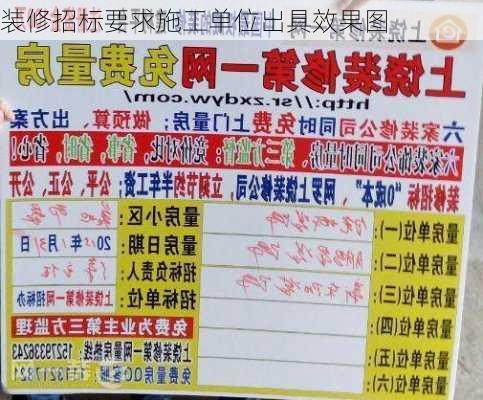 装修招标要求施工单位出具效果图_ _
上饶装修第一网免费量房
http://sr.zxdyw.com/
六家装修公司同时免费上门量房;做预算、出方案
六家装饰公司同时量房、第三方监督:竞价对比、省事,省时,省心!
装修招标"0成本"、网罗上饶装修公司、立刻节约半年工资、公平、公正、公开
量房单位(一):
量房单位(二):
量房单位(三):
量房单位(四):
量房单位(五):
量房单位(六):
量房小区:
量房日期: 20 年 月 日
招标负责人:
招标单位: 上饶装修第一网招标办
免费为业主第三方监理
上饶装修第一网量房热线:15279336243
免费量房QQ客服: